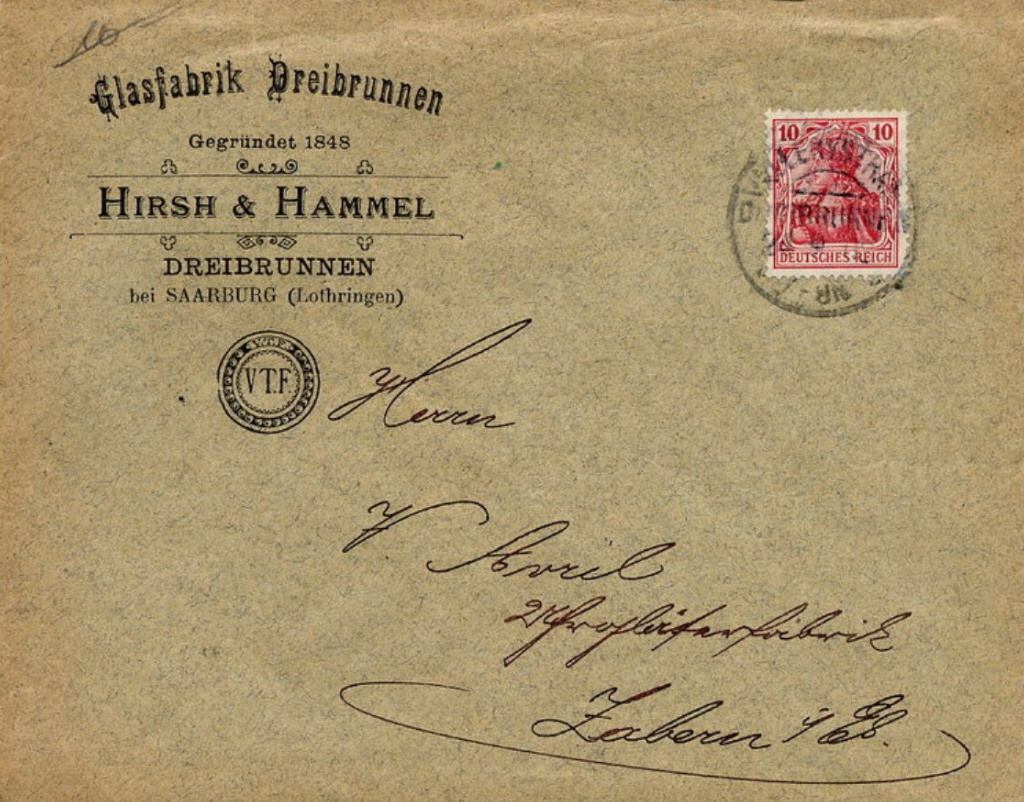 Glasfabrik Dreibrunnen
Gegründet 1848
HIRSH & HAMMEL
DREIBRUNNEN
bei SAARBURG (Lothringen)
V.T.F.
10 10
DEUTSCHES REICH
Herrn
Avril
Zabern i/Els.